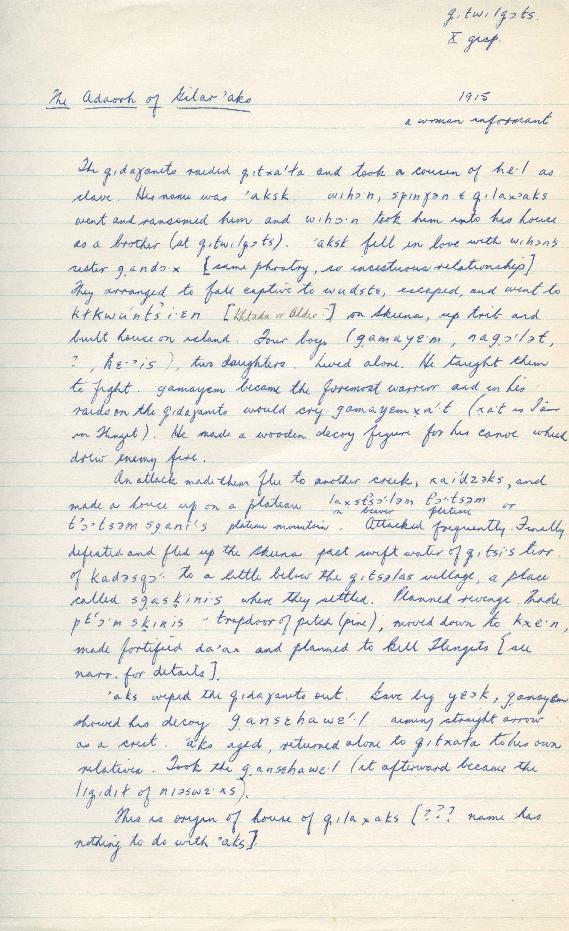 g̣ɩtwɩlgɔts.
X grsp.
The Adaorh of Gilar'aks
1915
a woman informant
The g̣ɩdaɣanits raided gɩtxa'ta and took a cousin of he·l as
slave. His name was 'aksk wihɔ·n, spɩnɣɔn & gɩlaxaks
went and ransomed him and wihɔ·n took him into his house
as a brother (at g̣ɩtwɩlgɔts). 'aksk fell in love with wihɔn's
sister g̣andɔ·x [same phratry, so incestuous relationship]
They arranged to fall captive to wudstɛ, escaped, and went to
[Khtada or Alder?] on Skeena, up trib and
built house on island. Four boys (g̣amayɛ'm, nagɔ'lət,
?, ), two daughters. Lived alone. He taught them
to fight. g̣amayɛm became the foremost warrior and in his
raids on the g̣ɩdaɣanits would cry g̣amayɛm xa't (xa't is I am
in Tlingit). He made a wooden decoy figure for his canoe which
drew enemy fire.
An attack made them flee to another creek, kaidzɔks, and
made a house up on a plateau or
on beaver plateau
t'ɔ·'tsəm sganɩ's plateau mountain. Attacked frequently. Finally
defeated and fled up the Skeena past swift water of g̣ɩtsi·s terr.
of kadɔsqɔ· to a little below the g̣ɩtsəlas village, a place
called sg̣askinis where they settled. Planned revenge. Made
pt'ɔ·'n skinis - trapdoor of pitch (pine), moved down to kxe·'n,
made fortified da'ax and planned to kill Tlingits [see
narr. for details].
'aks wiped the g̣ɩdaɣanits out. Gave big yɛɔk, g̣amayɛm
showed his decoy g̣ansɛhawɛ'·l aiming straight arrow
as a crest. 'aks aged, returned alone to gɩtxata to his own
relatives. Took the g̣ansɛhawɛ·l (it afterward became the
lɩg̣idit of nɩəswɛ·xs).
This is origin of house of g̣ɩlaxaks [??? name has
nothing to do with 'aks].